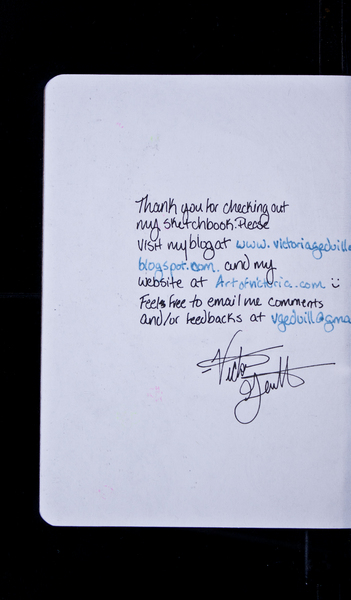 Thank you for checking out
my sketchbook. Please
visit my blog at www.victoriagedvilla
blogspot.com. and my
website at Artofvictoria.com
Feels free to email me comments
and/or feedbacks at vgedvill@gma